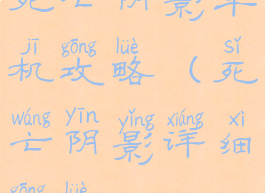 死亡阴影单
jī gōng lüè sǐ
机攻略（死
wáng yīn yǐng xiáng xì
亡阴影详细
gōng lüè